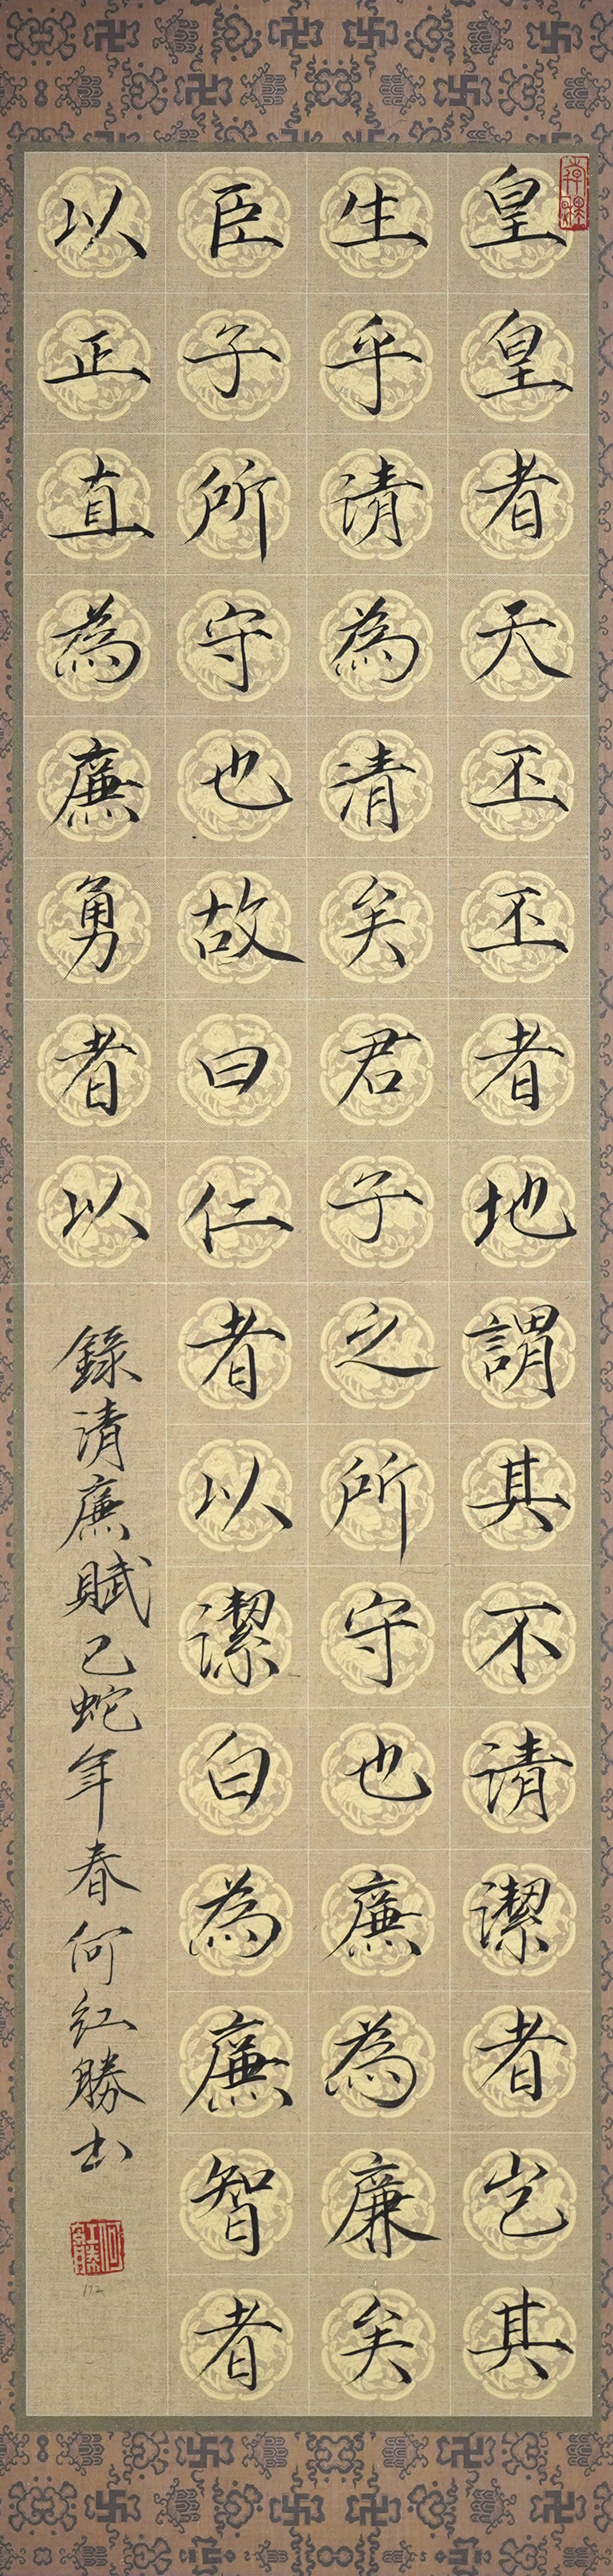 皇皇者天丕丕者地謂其不請潔者岂其
生乎请為清矣君子之所守也廉為廉矣
臣子所守也故曰仁者以潔白為廉智者
以正直為廉勇者以
錄清廉賦己蛇年春何红勝书
172